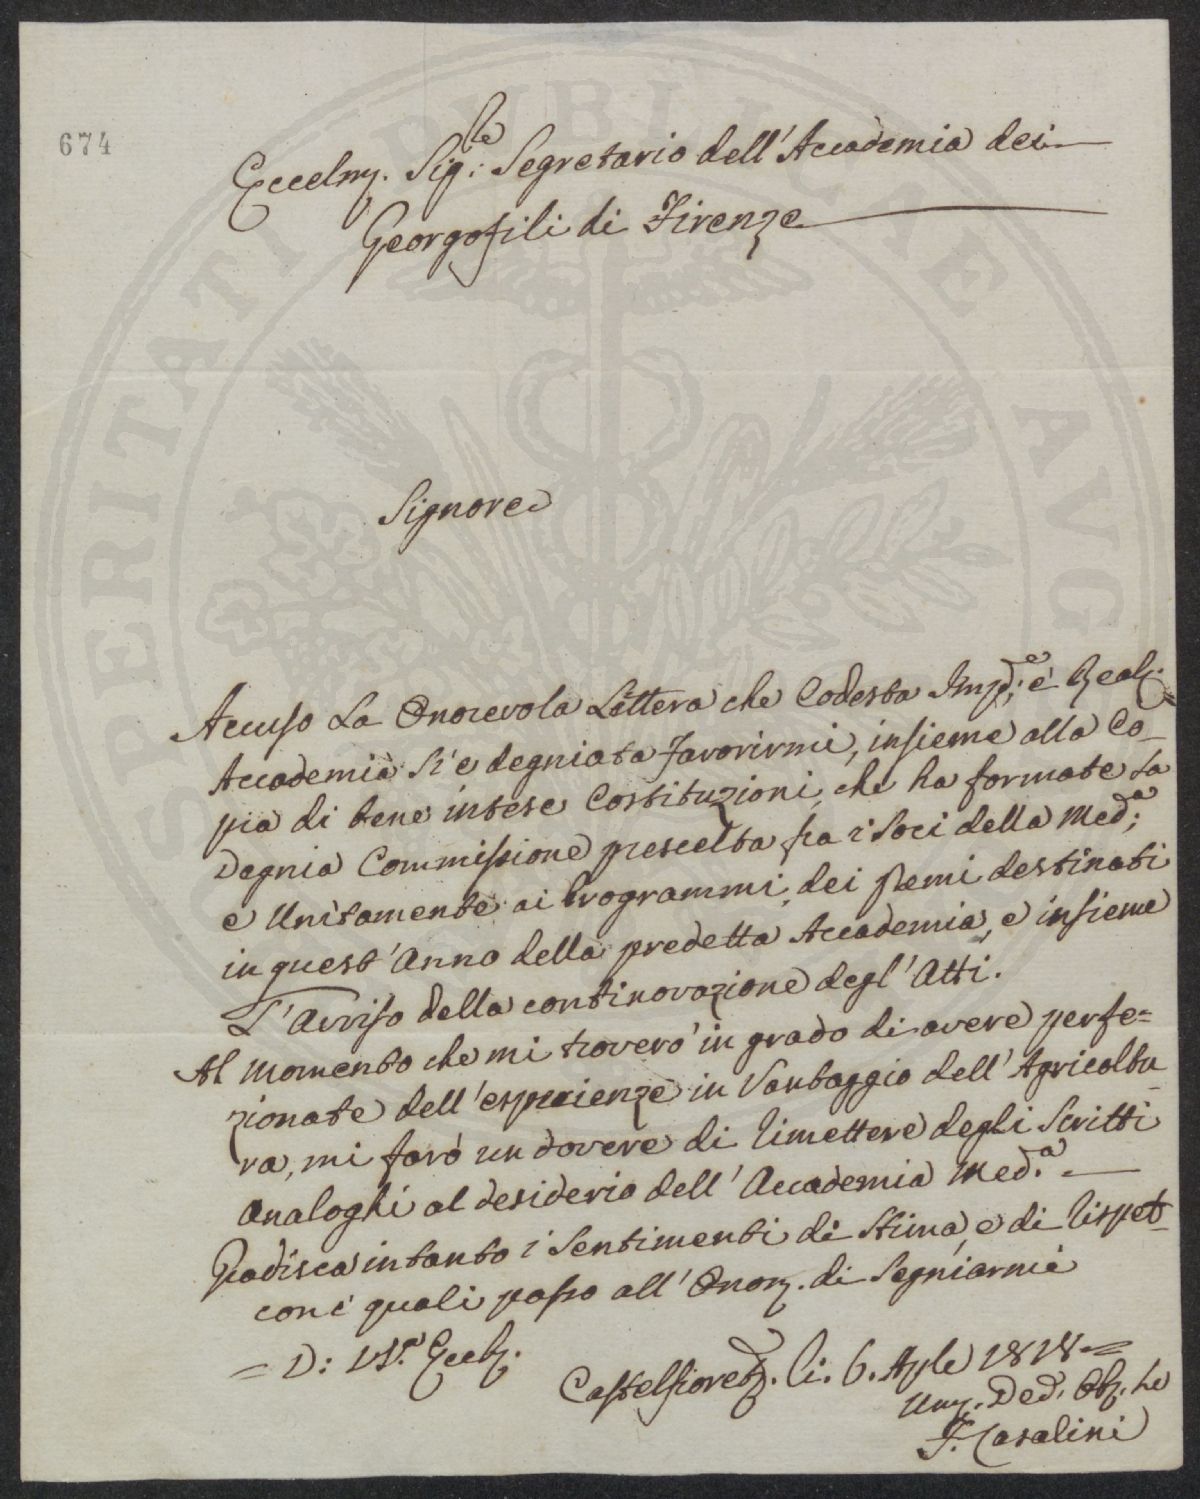 674
Eccelmo. Sigre: Segretario dell'Accademia dei
Georgofili di Firenze
Signore
Accuso La Onorevola Lettera che Codesta Impe: e Reale
Accademia si è degniata favorirmi, insieme alla Co-
pia di bene intese Costituzioni, che ha formate La
Degnia Commissione prescelta fra i Soci della Meda;
e Unitamente ai Programmi, dei premi destinati
in quest'Anno della predetta Accademia, e insieme
L'Avviso della continovazione degl'Atti.
Al momento che mi troverò in grado di avere perfe=
zionate dell'esperienze in Vantaggio dell'Agricoltu
ra, mi farò un dovere di Rimettere degli Scritti
Analoghi al desiderio dell'Accademia Med.a
Gradisca intanto i Sentimenti di Stima, e di Rispet-
con i quali passo all'Onore. di Segniarmi
= D: VS.a Eccel.
Castelfiorento. li. 6. Aple 1818 =
Umo. Ded. Obo. Se
F. Casalini
PROSPERITATI PUBLICAE AUGENDAE